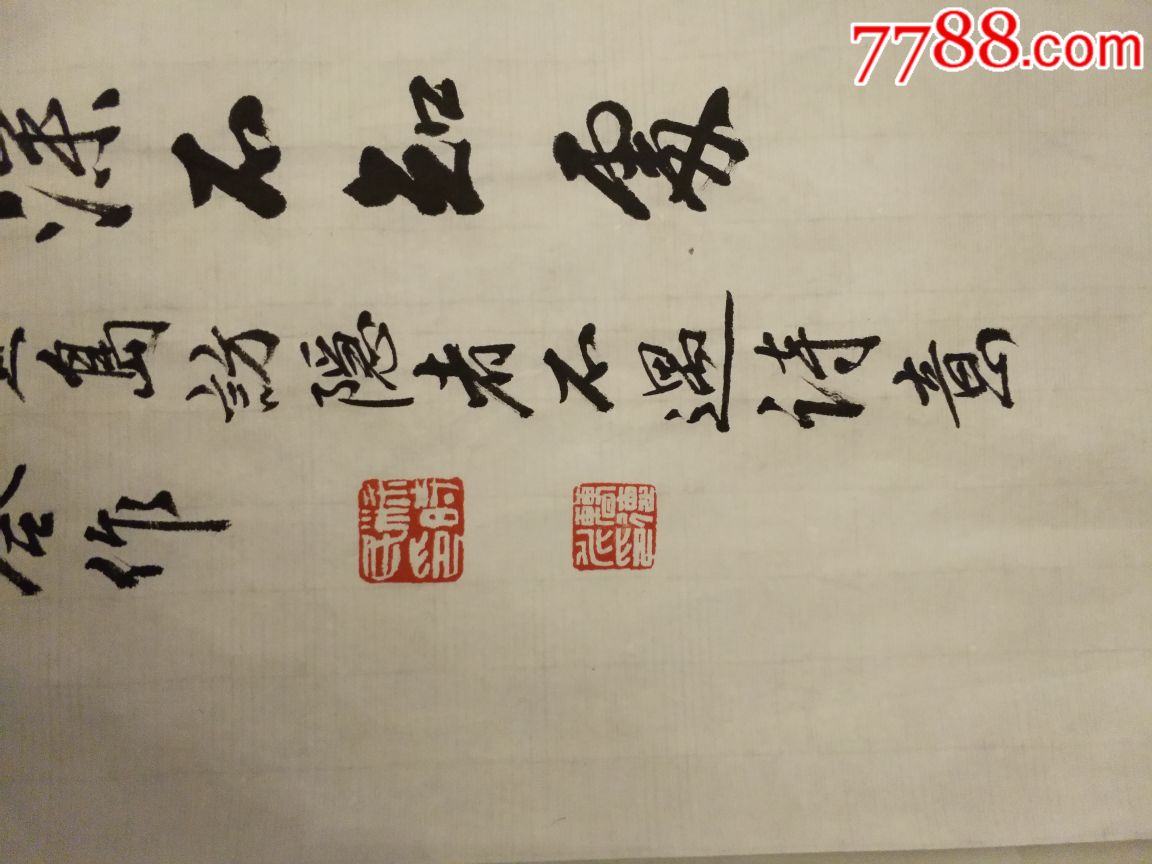 7788.com
深不知處
島訪隱者不遇詩意
作